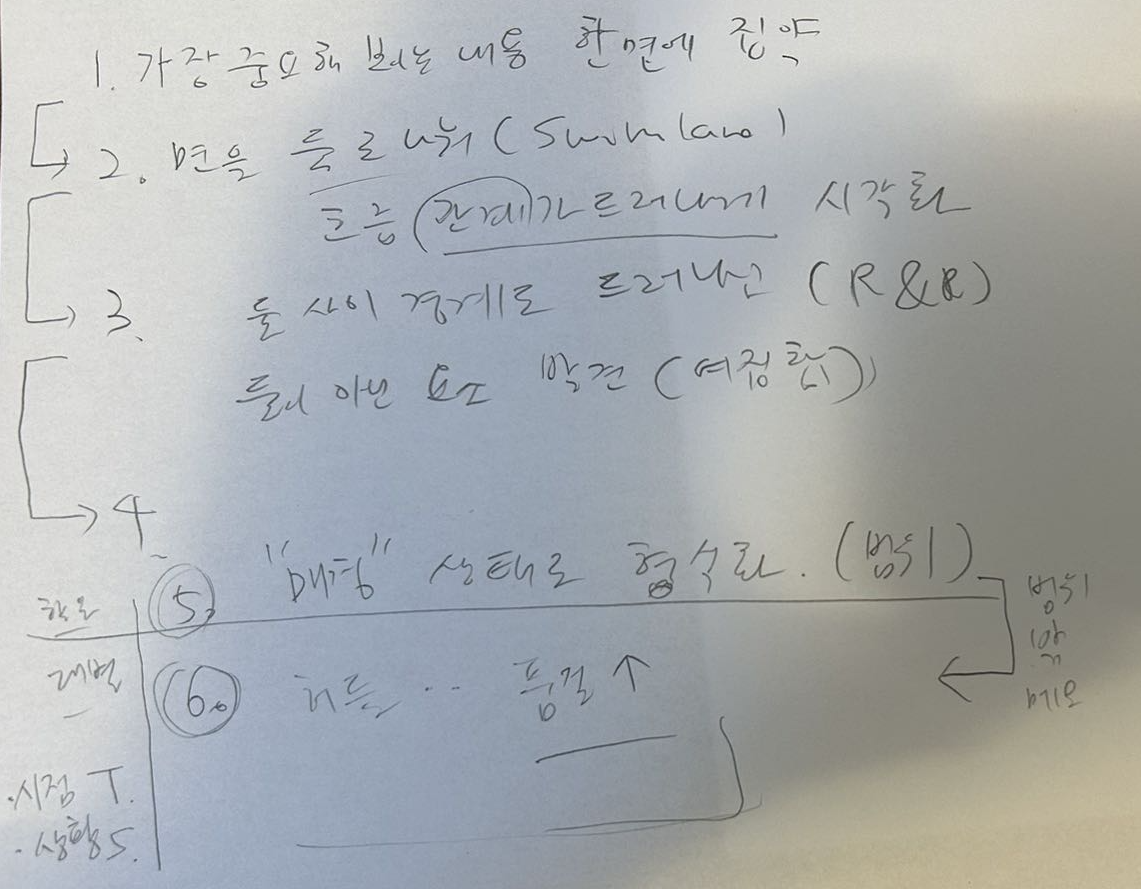 1. 가장 중요해 보이는 내용 한 면에 집약
2. 면을 둘로 나눠 (Swimlane)
흐름 (관계)가 드러나게 시각화
3. 둘 사이 경계도 드러나고 (R&R)
둘이 아닌 요소 발견 (여집합)
4.
5. "매칭" 상태로 형식화. (범위)
범위
밖
메모
학습
개별
6. 허들 .. 품질 ↑
· 시점 T.
· 상황 S.